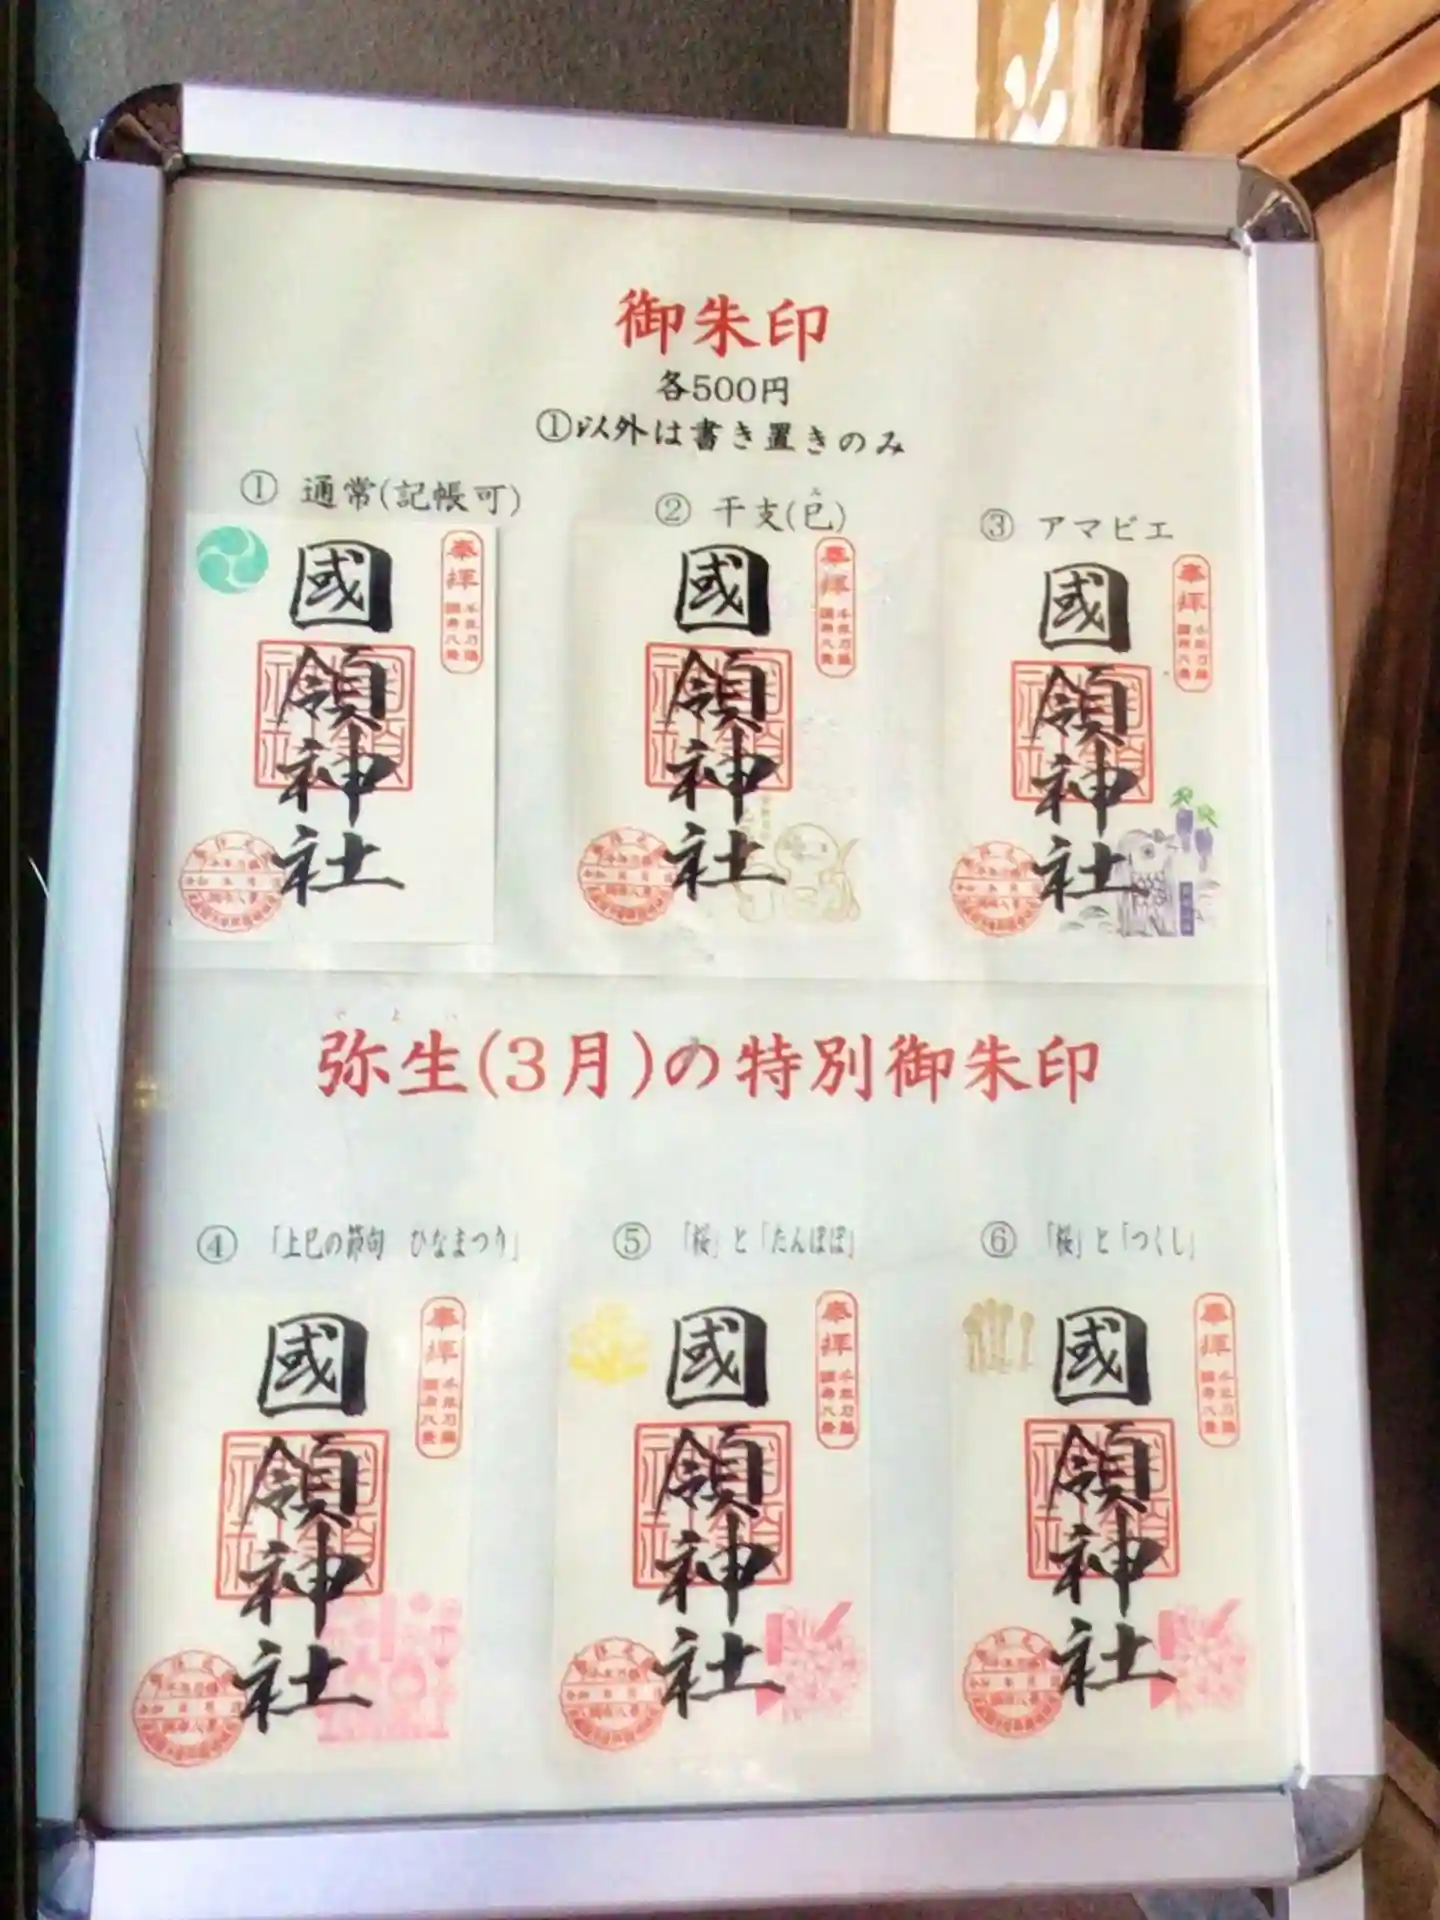 御朱印
各500円
①以外は書き置きのみ
① 通常(記帳可)
② 干支(巳)
③ アマビエ
奉拝
國領神社
奉拝
國領神社
奉拝
國領神社
やよい
弥生(3月)の特別御朱印
④ 「上巳の節句 ひなまつり」
⑤ 「桜」と「たんぽぽ」
⑥ 「桜」と「つくし」
奉拝
國領神社
奉拝
國領神社
奉拝
國領神社